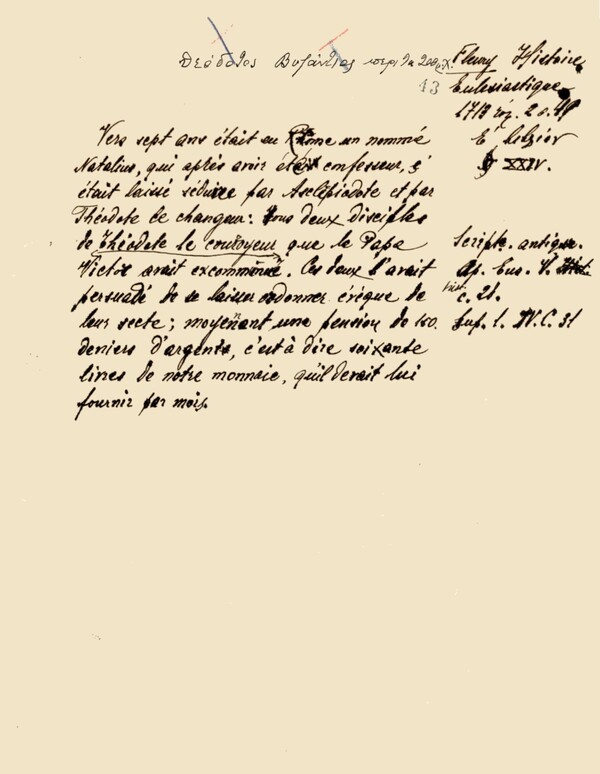 Θεόδοτος Βυζάντιος περὶ τὰ 200 μ.Χ.
13
Fleury Histoire
Eulesiastique
1713
§ XXIV.
Vers sept ans était eu Rome un nommé
Natalius, qui après avoir était confesseur, s'
était laissé séduire par Asclépiodote et par
Théodote le changeur: tous deux disciples
de Théodote le couroyeur que le Papa
Victor avait excommunié. Ces deux l'avait
persuadé de se laisser ordonner évêque de
leur secte; moyeñant une pension de 150.
deniers d'argents, c'est à dire soixante
livres de notre monnaie, qu'il devait lui
fournir par mois.
Script. antique.
Ap. Eus. V.
c. 21.
Sup. l. IV. C. 31